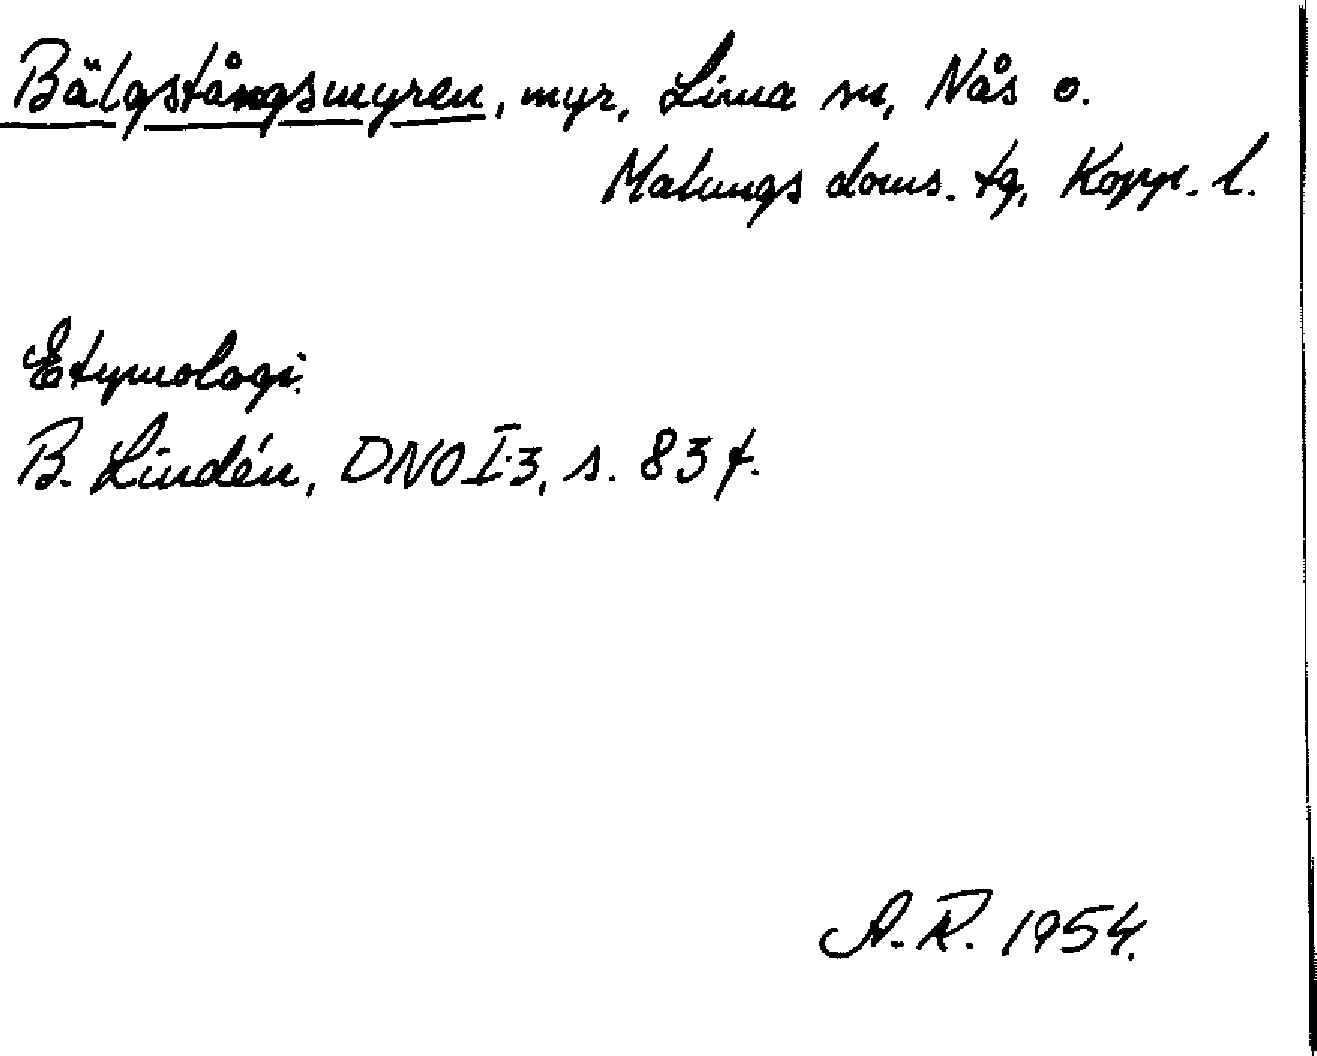 Bälgstångsmyren, myr, Lima sn, Nås o.
Malungs doms. tg, Kopp. l.
Etymologi.
B. Lindén, DNO I:3, s. 83 f.
A. R. 1954.